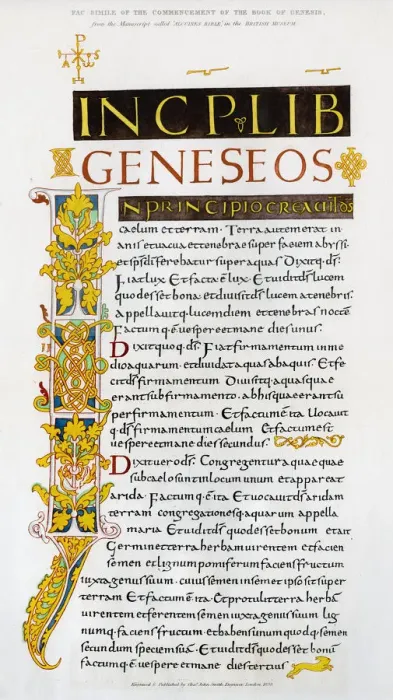 FAC SIMILE OF THE COMMENCEMENT OF THE BOOK OF GENESIS,
from the Manuscript called "ALCUINES BIBLE" in the BRITISH MUSEUM.
INCP LIB
GENESEOS
IN PRINCIPIO CREAVIT DS
caelum et terram · Terra autem erat in
anis et vacua et tenebrae super faciem abyssi·
et sps di ferebatur super aquas Dixitq· ds·
Fiat lux Et facta ē lux· Et vidit ds lucem
quod esset bona· et divisit ds lucem a tenebris·
appellavitq· lucem diem et tenebras noctē
Factum q· ē vespere et mane dies unus·
Dixit quoq· ds· Fiat firmamentum in me
dio aquarum· et dividat aquas ab aquis· Et fe
cit ds firmamentum Divisitq· aquas quae
erant sub firmamento· ab his quae erant su
per firmamentum · Et factum ē ita Vocavit
q· ds firmamentum caelum Et factum est
vespere et mane dies secundus·
Dixit vero ds· Congregentur aquae quae
sub caelo sunt in locum unum et appareat
arida· Factum q· ē ita Et vocavit ds aridam
terram congregationesq· aquarum appella
maria Et vidit ds quod esset bonum et ait
Germinet terra herbam virentem et facien
semen et lignum pomiferum faciens fructum
iuxta genus suum· cuius semen in semet ipso sit super
terram Et factum ē ita· Et protulit terra herbā
virentem et ferentem semen iuxta genus suum lig
numq· faciens fructum· et habens unum quodq· semen
secundum speciem suā· Et vidit ds quod esset bonū
factum q· ē vespere et mane dies tertius
Engraved & Published by Chas. John Smith Engraver, London,